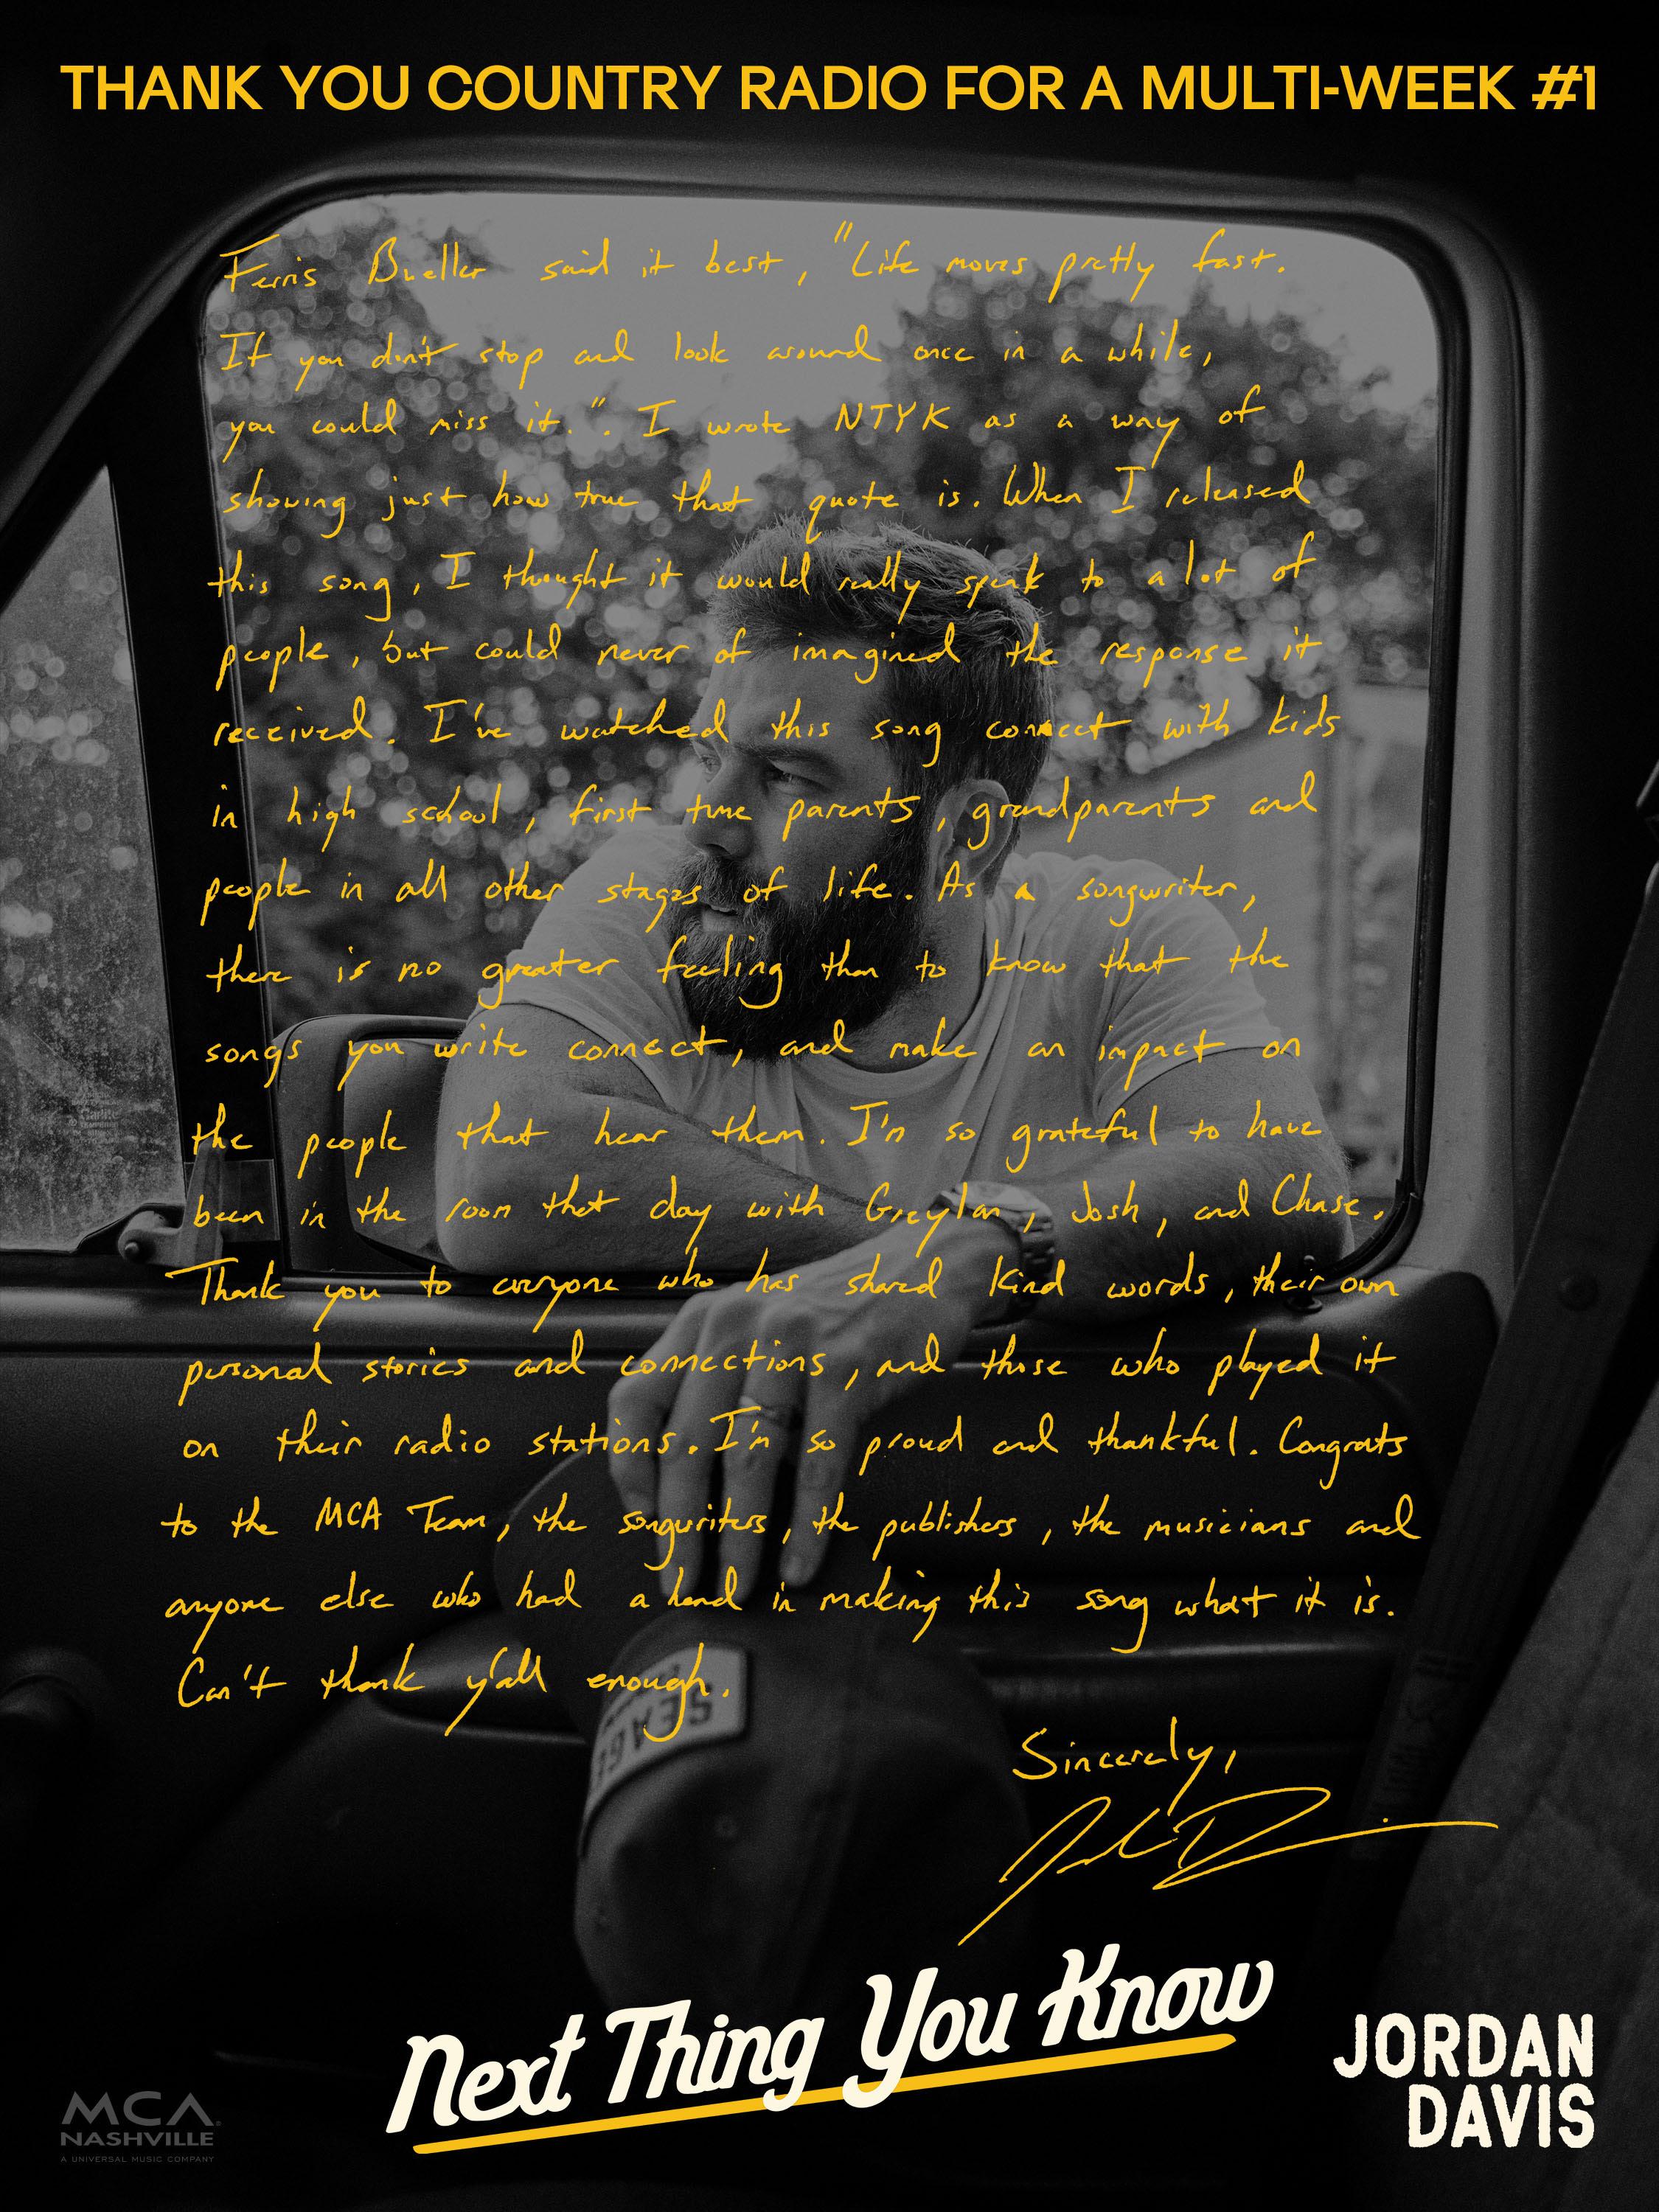 THANK YOU COUNTRY RADIO FOR A MULTI-WEEK #1
Ferris Bueller said it best, "Life moves pretty fast.
If you don't stop and look around once in a while,
you could miss it.". I wrote NTYK as a way of
showing just how true that quote is. When I released
this song, I thought it would really speak to a lot of
people, but could never of imagined the response it
received. I've watched this song connect with kids
in high school, first time parents, grandparents and
people in all other stages of life. As a songwriter,
there is no greater feeling than to know that the
songs you write connect, and make an impact on
the people that hear them. I'm so grateful to have
been in the room that day with Greylan, Josh, and Chase.
Thank you to everyone who has shared kind words, their own
personal stories and connections, and those who played it
on their radio stations. I'm so proud and thankful. Congrats
to the MCA Team, the songwriters, the publishers, the musicians and
anyone else who had a hand in making this song what it is.
Can't thank y'all enough.
Sincerely,
Next Thing You Know
JORDAN
DAVIS
MCA
NASHVILLE
A UNIVERSAL MUSIC COMPANY